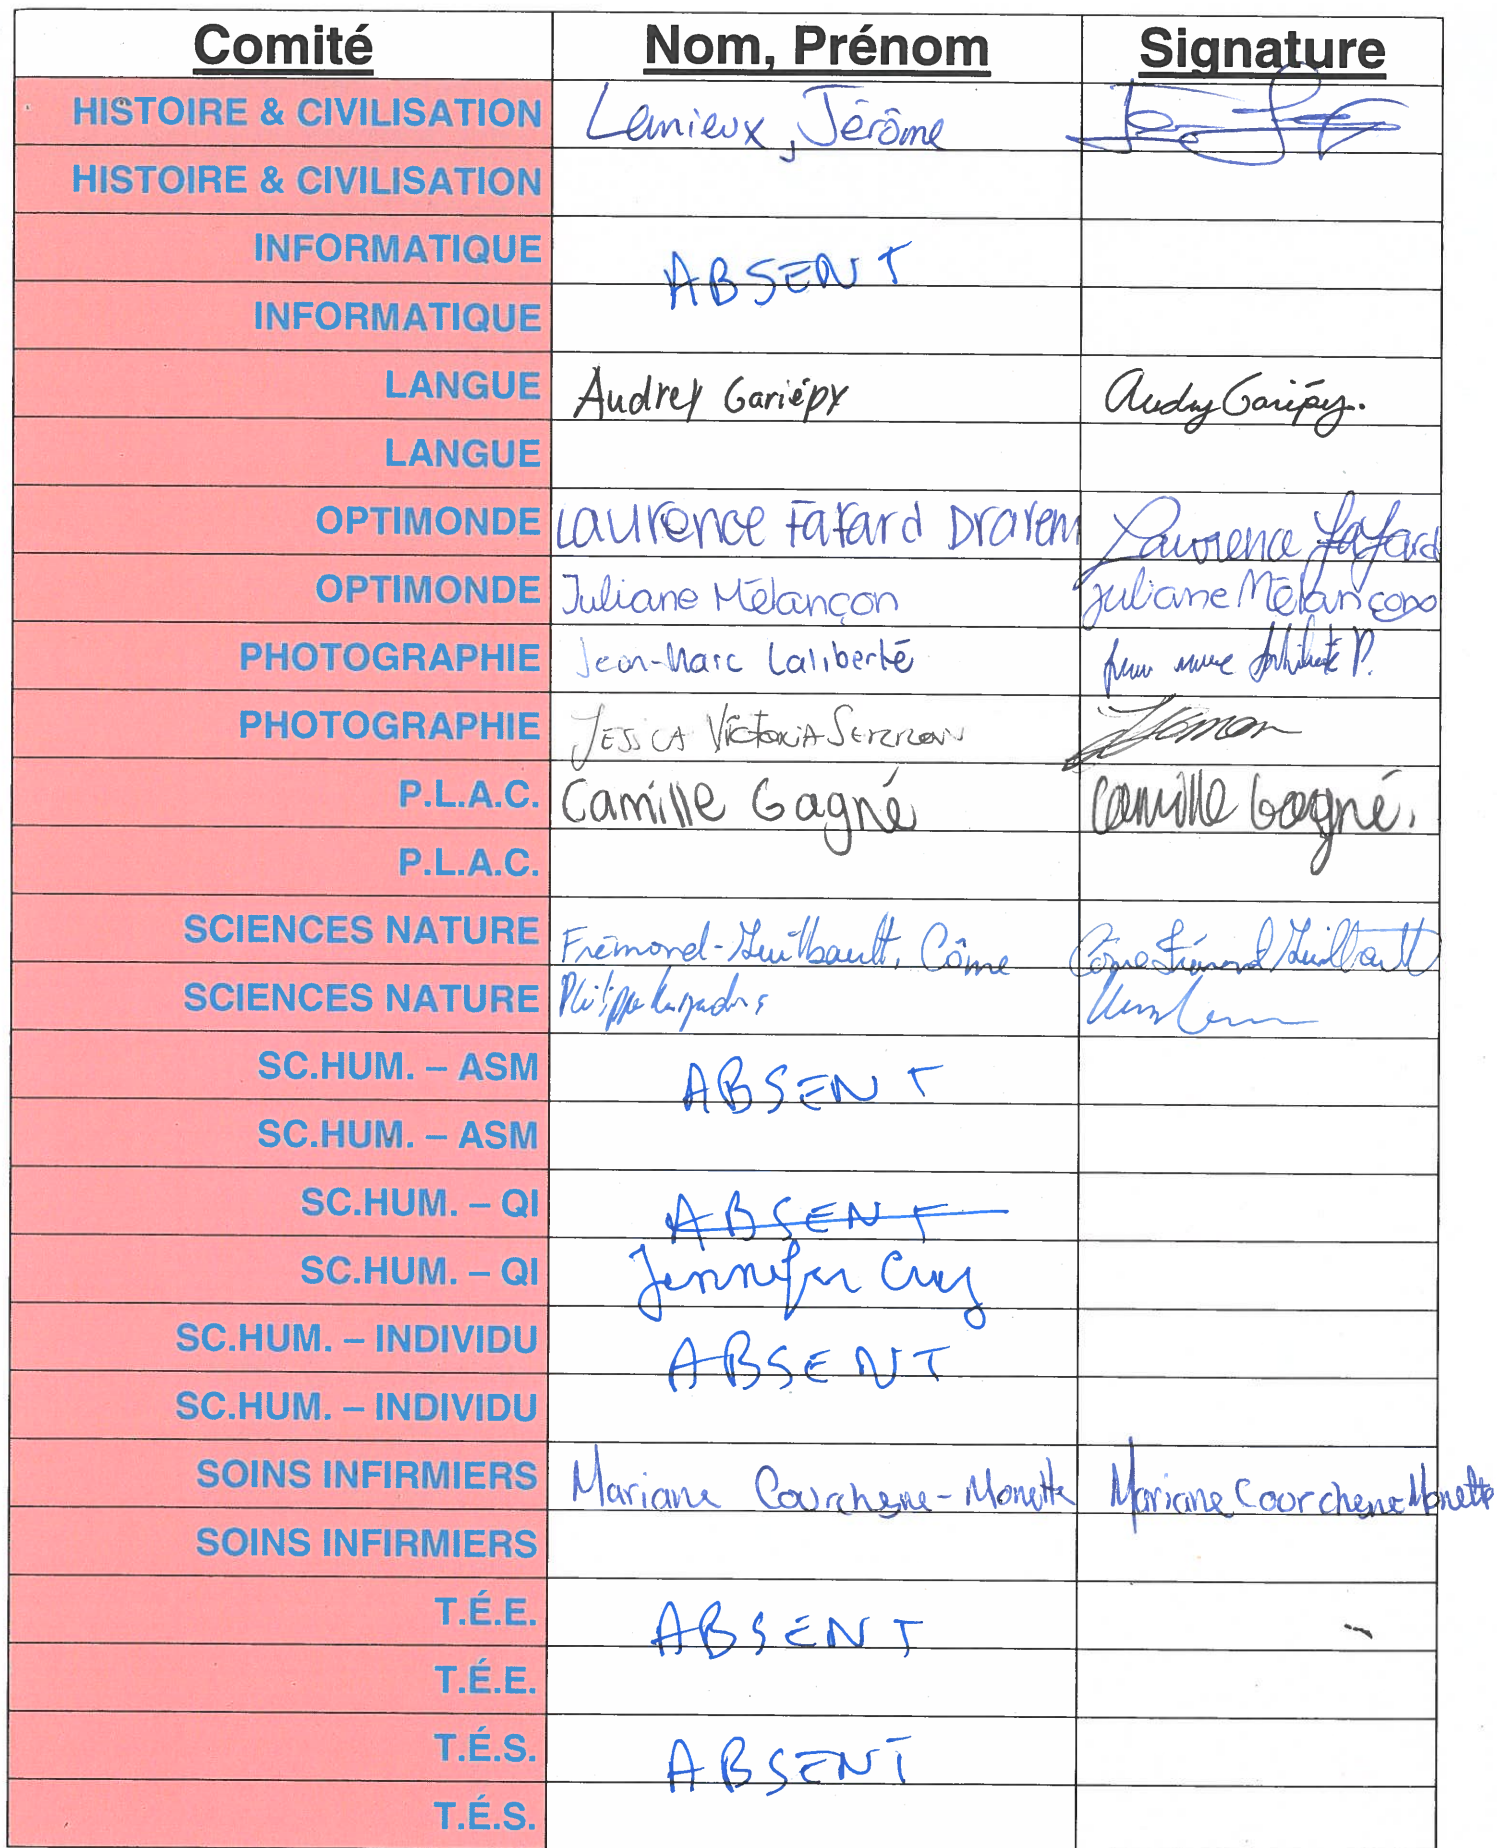 Comité Nom, Prénom Signature
HISTOIRE & CIVILISATION Lemieux, Jérôme
HISTOIRE & CIVILISATION
INFORMATIQUE ABSENT
INFORMATIQUE
LANGUE Audrey Gariépy Audrey Gariépy.
LANGUE
OPTIMONDE Laurence Fafard Laurence Fafard
OPTIMONDE Juliane Mélançon Juliane Mélançon
PHOTOGRAPHIE Jean-Marc Laliberté
PHOTOGRAPHIE JESSICA VICTORIA
P.L.A.C. Camille Gagné Camille Gagné.
P.L.A.C.
SCIENCES NATURE Frémond-Guilbault, Côme Côme Frémond Guilbault
SCIENCES NATURE Philippe
SC.HUM. – ASM ABSENT
SC.HUM. – ASM
SC.HUM. – QI ABSENT
SC.HUM. – QI Jennifer
SC.HUM. – INDIVIDU ABSENT
SC.HUM. – INDIVIDU
SOINS INFIRMIERS Mariane Courchesne-Monette Mariane Courchesne Monette
SOINS INFIRMIERS
T.É.E. ABSENT
T.É.E.
T.É.S. ABSENT
T.É.S.